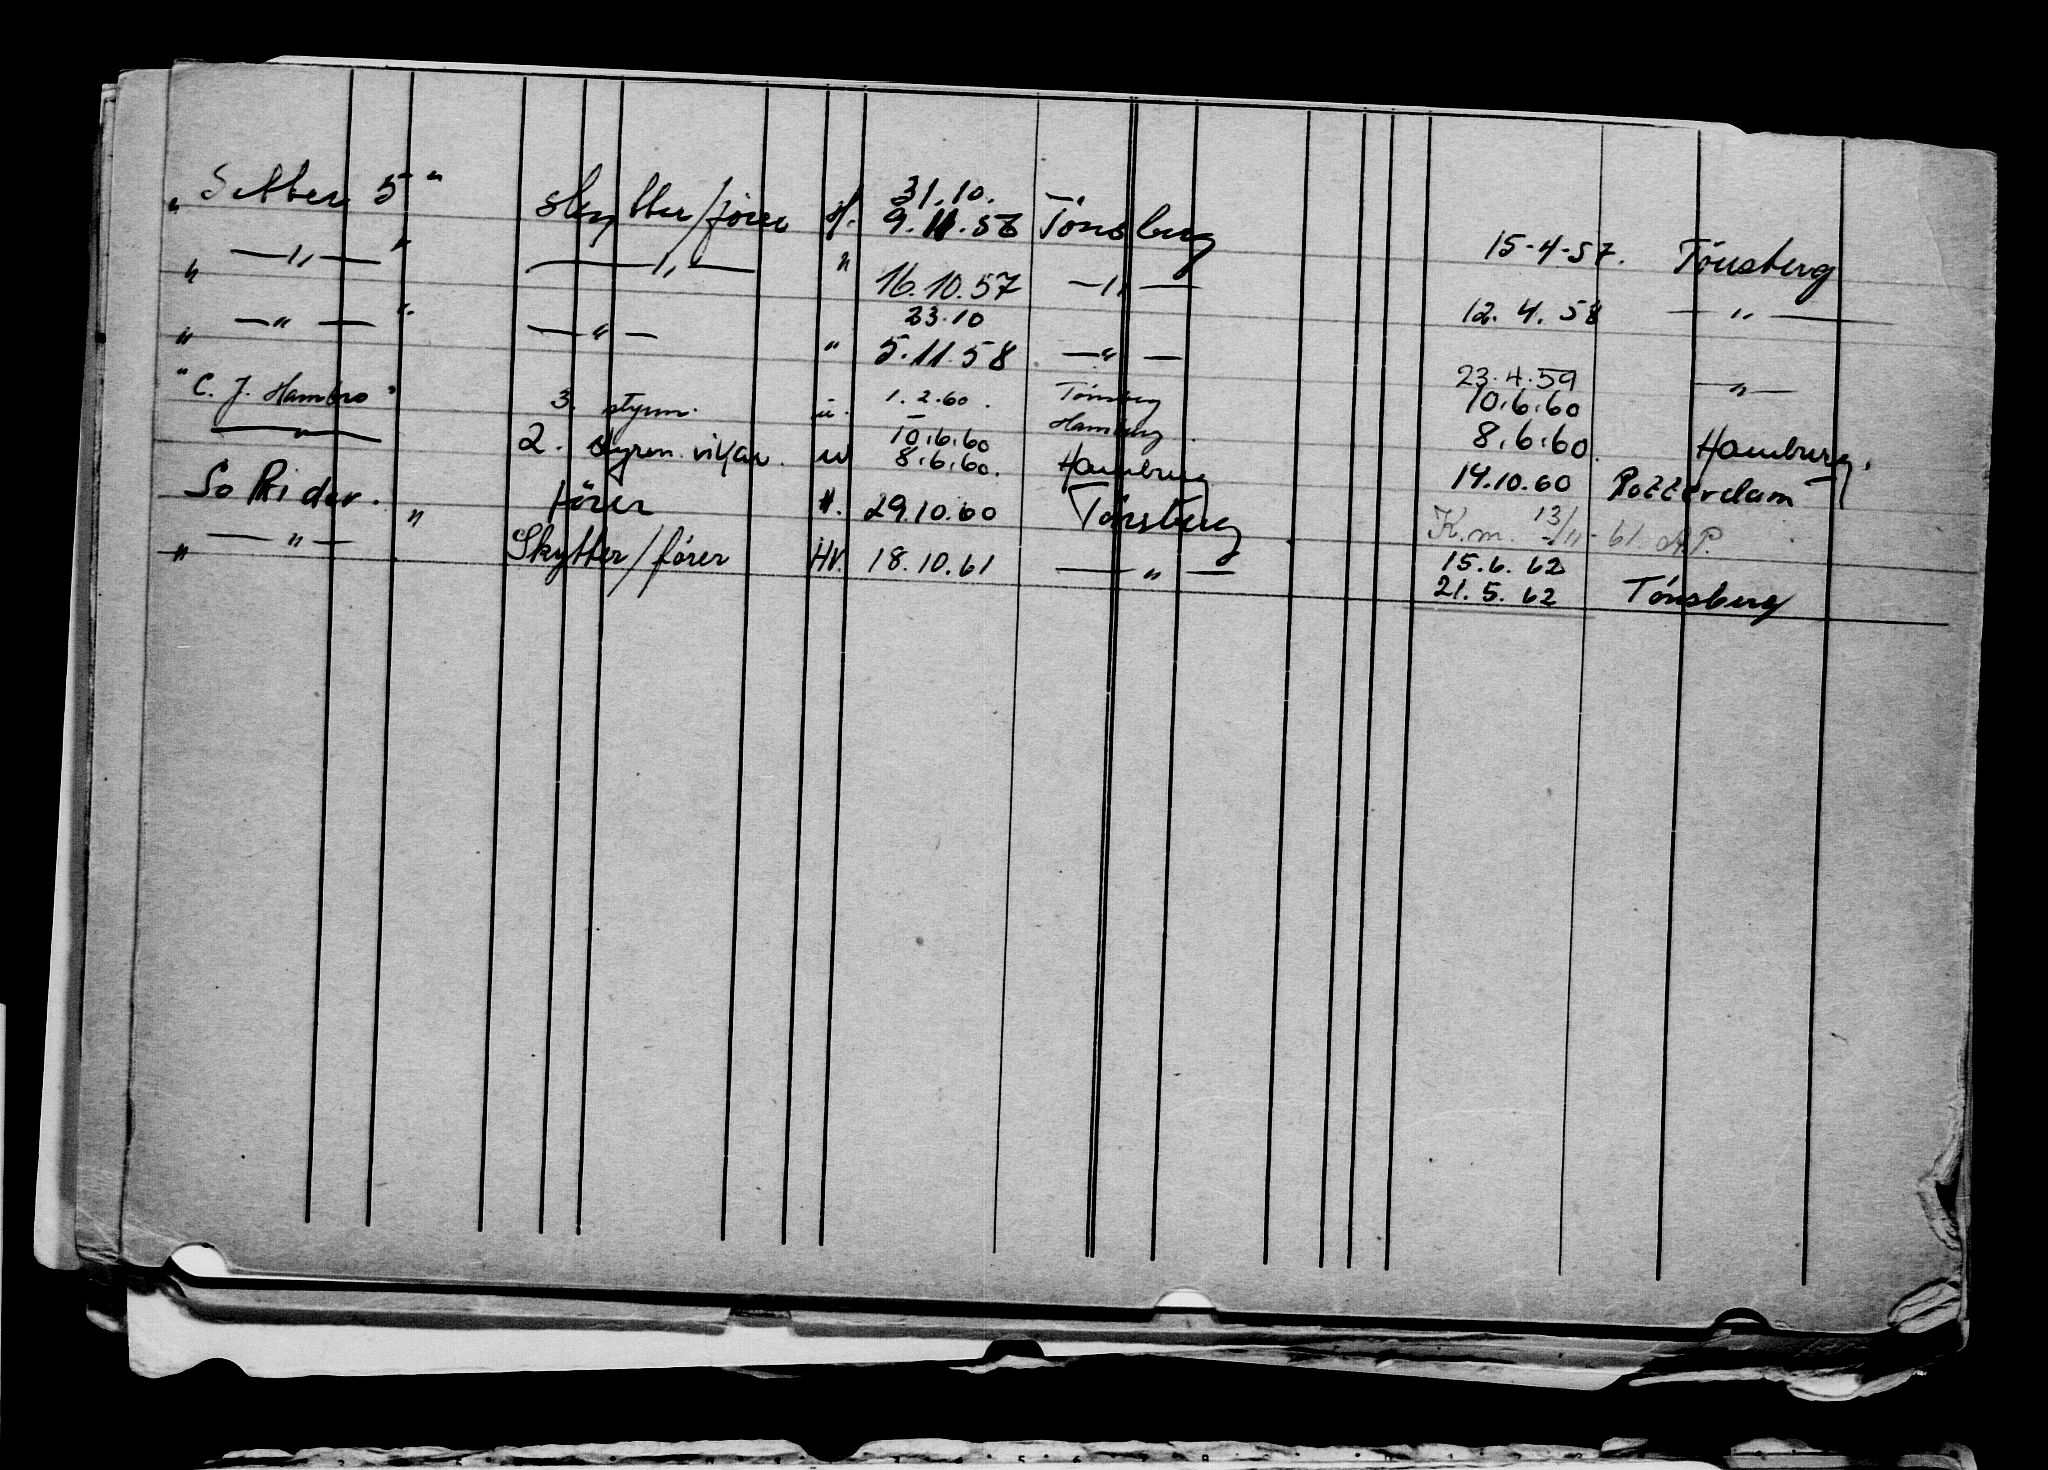 " Setter 5 " skytter/fører H. 31.10. 9.11.56 Tönsberg 15-4-57. Tönsberg
" — " — " — " — " 16.10.57 — " — 12.4.58 — " —
" — " — " — " — " 23.10 5.11.58 — " — 23.4.59 — " —
" C. J. Hambro " 3. styrm. u. 1.2.60. Tönsberg 10.6.60
— " — 2. styrm. vikar. u 10.6.60 8.6.60. Hamburg Hamburg 8.6.60. Hamburg.
So Rider. fører 29.10.60 Tönsberg 14.10.60 Rotterdam
K.m. 13/11-61 A.P.
" — " — " Skytter/fører Hv. 18.10.61 — " — 15.6.62 21.5.62 Tönsberg